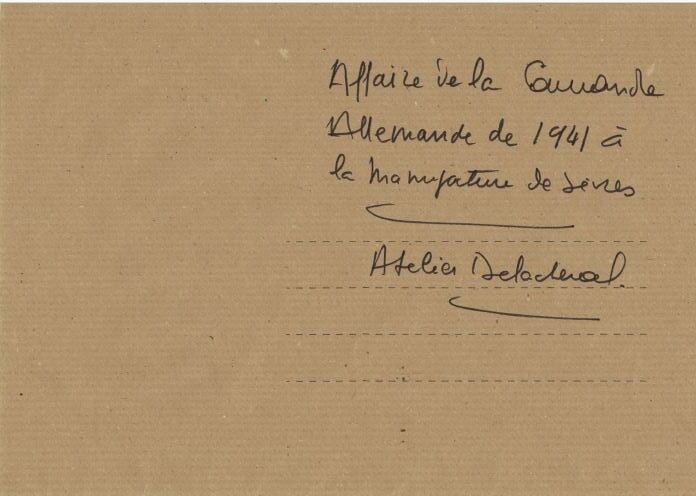 Affaire de la Commande
Allemande de 1941 à
la Manufacture de Sèvres
Atelier Delacheval.